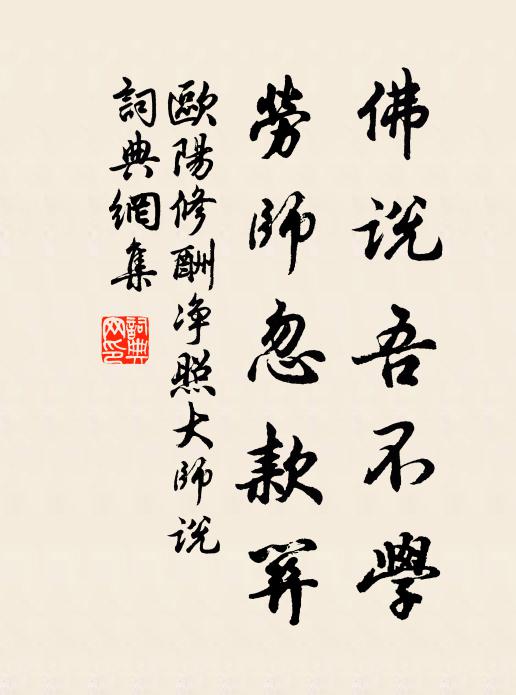 佛說吾不學
勞師忽款關
歐陽修酬淨照大師說
詞典網集
詞典網印